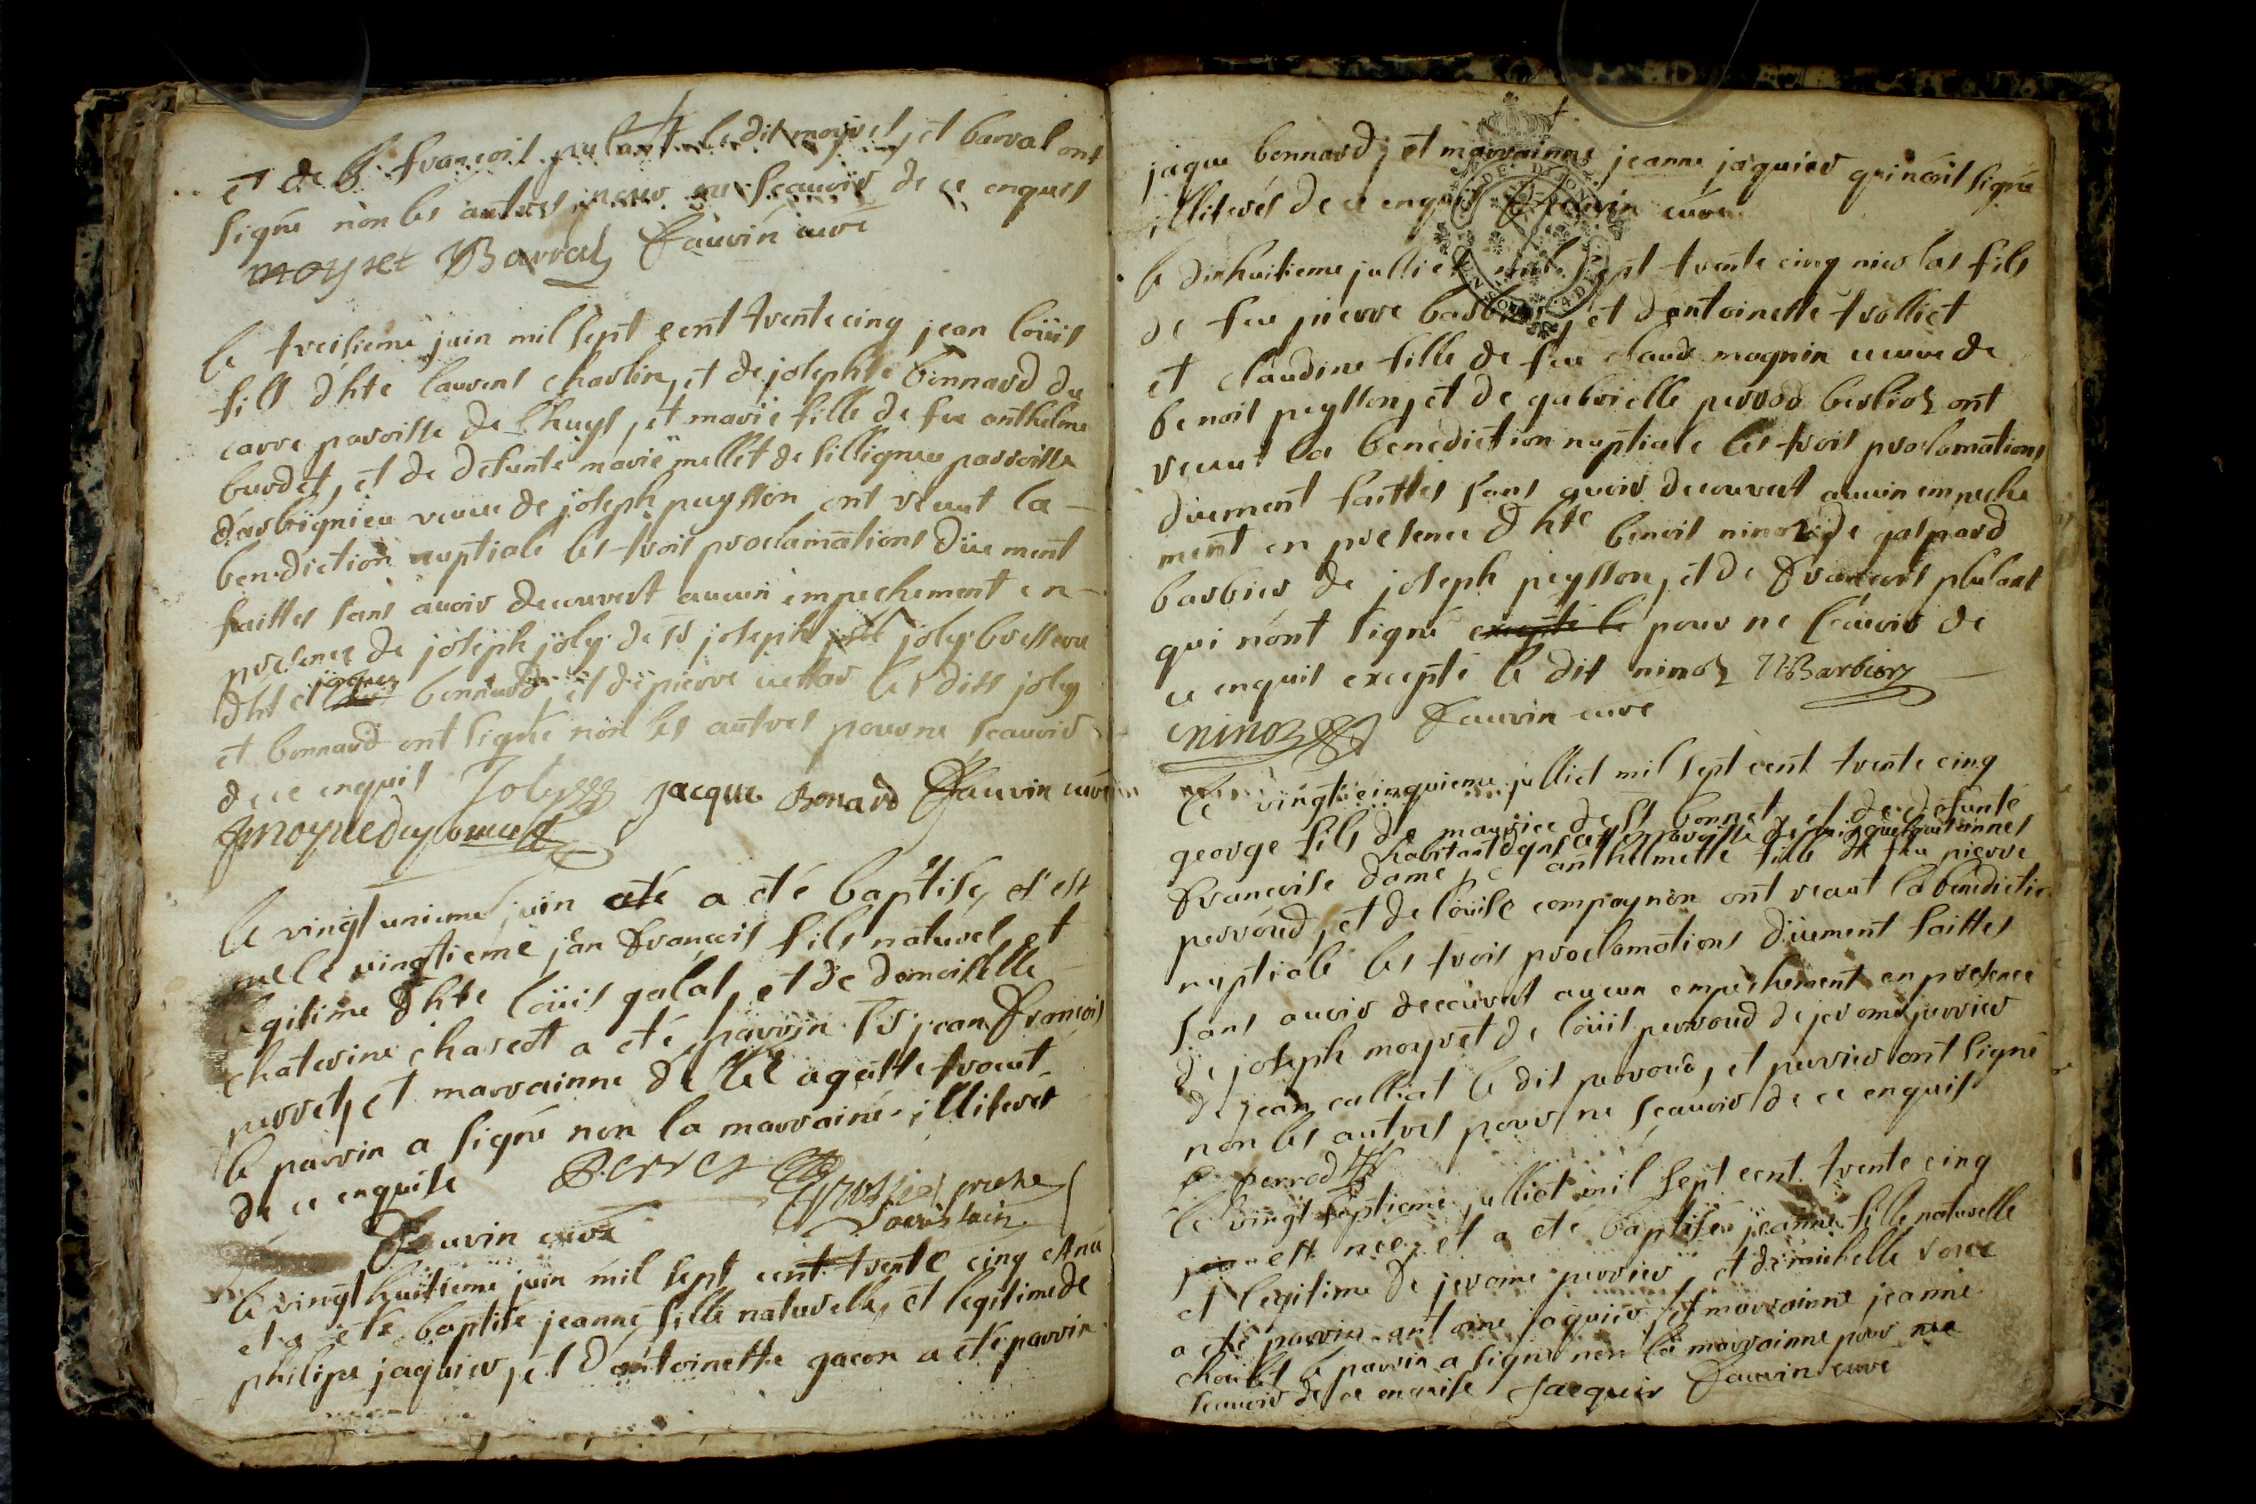 et de françois pulant le dit moyret, et barral ont
signé non les autres pour ne scauoir de ce enquis
moyret Barral fauvin curé
le treisieme juin mil sept cent trente cinq jean loüis
fils d'hte laurens charlin, et de josephte bonnard du
carre paroisse de lhuys, et marie fille de feu anthelme
burdet, et de defunte marie mellet de sillignieu parroisse
d'arbignieu veuue de joseph peysson ont receut la
benediction nuptiale les trois proclamations düement
faittes sans auoir decouvert aucun empechement en
presence de joseph joly de sr joseph joly bresseux
d'hte jaques bonnard, et de pierre les dits joly
et bonnard ont signé non les autres pour ne scauoir
de ce enquis Joly jacque Bonard fauvin curé
le vingt unieme juin a eté baptisé, et est
né le vingtieme jean françois fils naturel, et
legitime d'hte loüis galat, et de demoiselle
chaterine a eté parrin sr jean françois
perret, et marrainne delle agatte
le parrin a signé non la marraine illiteree
de ce enquise Perret
prestre
sacristain
fauvin curé
le vingt huitieme juin mil sept cent trente cinq est née
et a eté baptisé jeanne fille naturelle, et legitime de
philipe jaquier, et d'antoinette gacon a eté parrin
jaque bonnard, et marrainne jeanne jaquier qui n'ont signé
illiterés de ce enquis fauvin curé
le dixhuitieme julliet mil sept trente cinq nicolas fils
de feu pierre barbier, et d'antoinette trolliet
et claudine fille de feu claude magnin veuve de
benoit peysson, et de gabrielle perrod berlioz ont
receut la benediction nuptiale les trois proclamations
düement faittes sans avoir decouvert aucun empeche
ment en presence d'hte benoit ninoz, de gaspard
barbier de joseph peysson, et de françois pulant
qui n'ont signé excepté le pour ne scavoir de
ce enquis excepté le dit ninoz N Barbier
ninoz fauvin curé
le vingtcinquieme julliet mil sept cent trente cinq
george fils de maurice de st bonnet, et de defunte
habitant dans cette parroisse de puis quelques annees
françoise dame, et anthelmette fille de feu pierre
perroud, et de loüise compagnon ont receut la benedictio
nuptiale les trois proclamations düement faittes
sans avoir decouvert aucun empechement en presence
de joseph moyret de loüis perroud de jerome perrier
de jean calliat le dit perroud, et perrier ont signé
non les autres pour ne scauoir de ce enquis
perrod
le vingt septieme julliet mil sept cent trente cinq
est née, et a eté baptisée jeanne fille naturelle
et legitime de jerome perrier, et de michelle
a eté parrin antoine jaquier, et marrainne jeanne
le parrin a signé non la marrainne pour ne
scauoir de ce enquise Jacquir fauvin curé